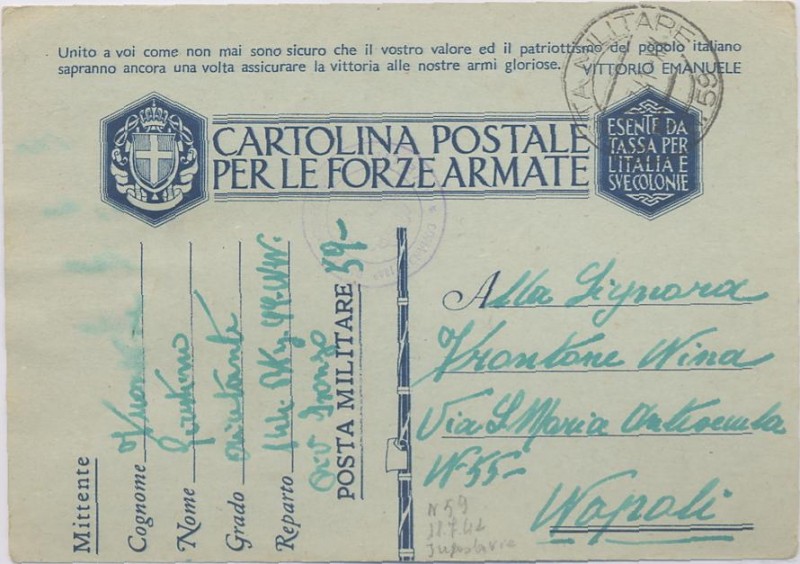 Unito a voi come non mai sono sicuro che il vostro valore ed il patriottismo del popolo italiano
sapranno ancora una volta assicurare la vittoria alle nostre armi gloriose. VITTORIO EMANUELE
TA MILITARE
59
CARTOLINA POSTALE
PER LE FORZE ARMATE
ESENTE DA
TASSA PER
L'ITALIA E
SVE COLONIE
Mittente
Cognome
Nome
Grado Aiutante
Reparto
Div Isonzo
POSTA MILITARE 59-
Alla Signora
Vrontone Nina
Via S. Maria Antesecula
N-55-
Napoli
N 59
Jugoslavia